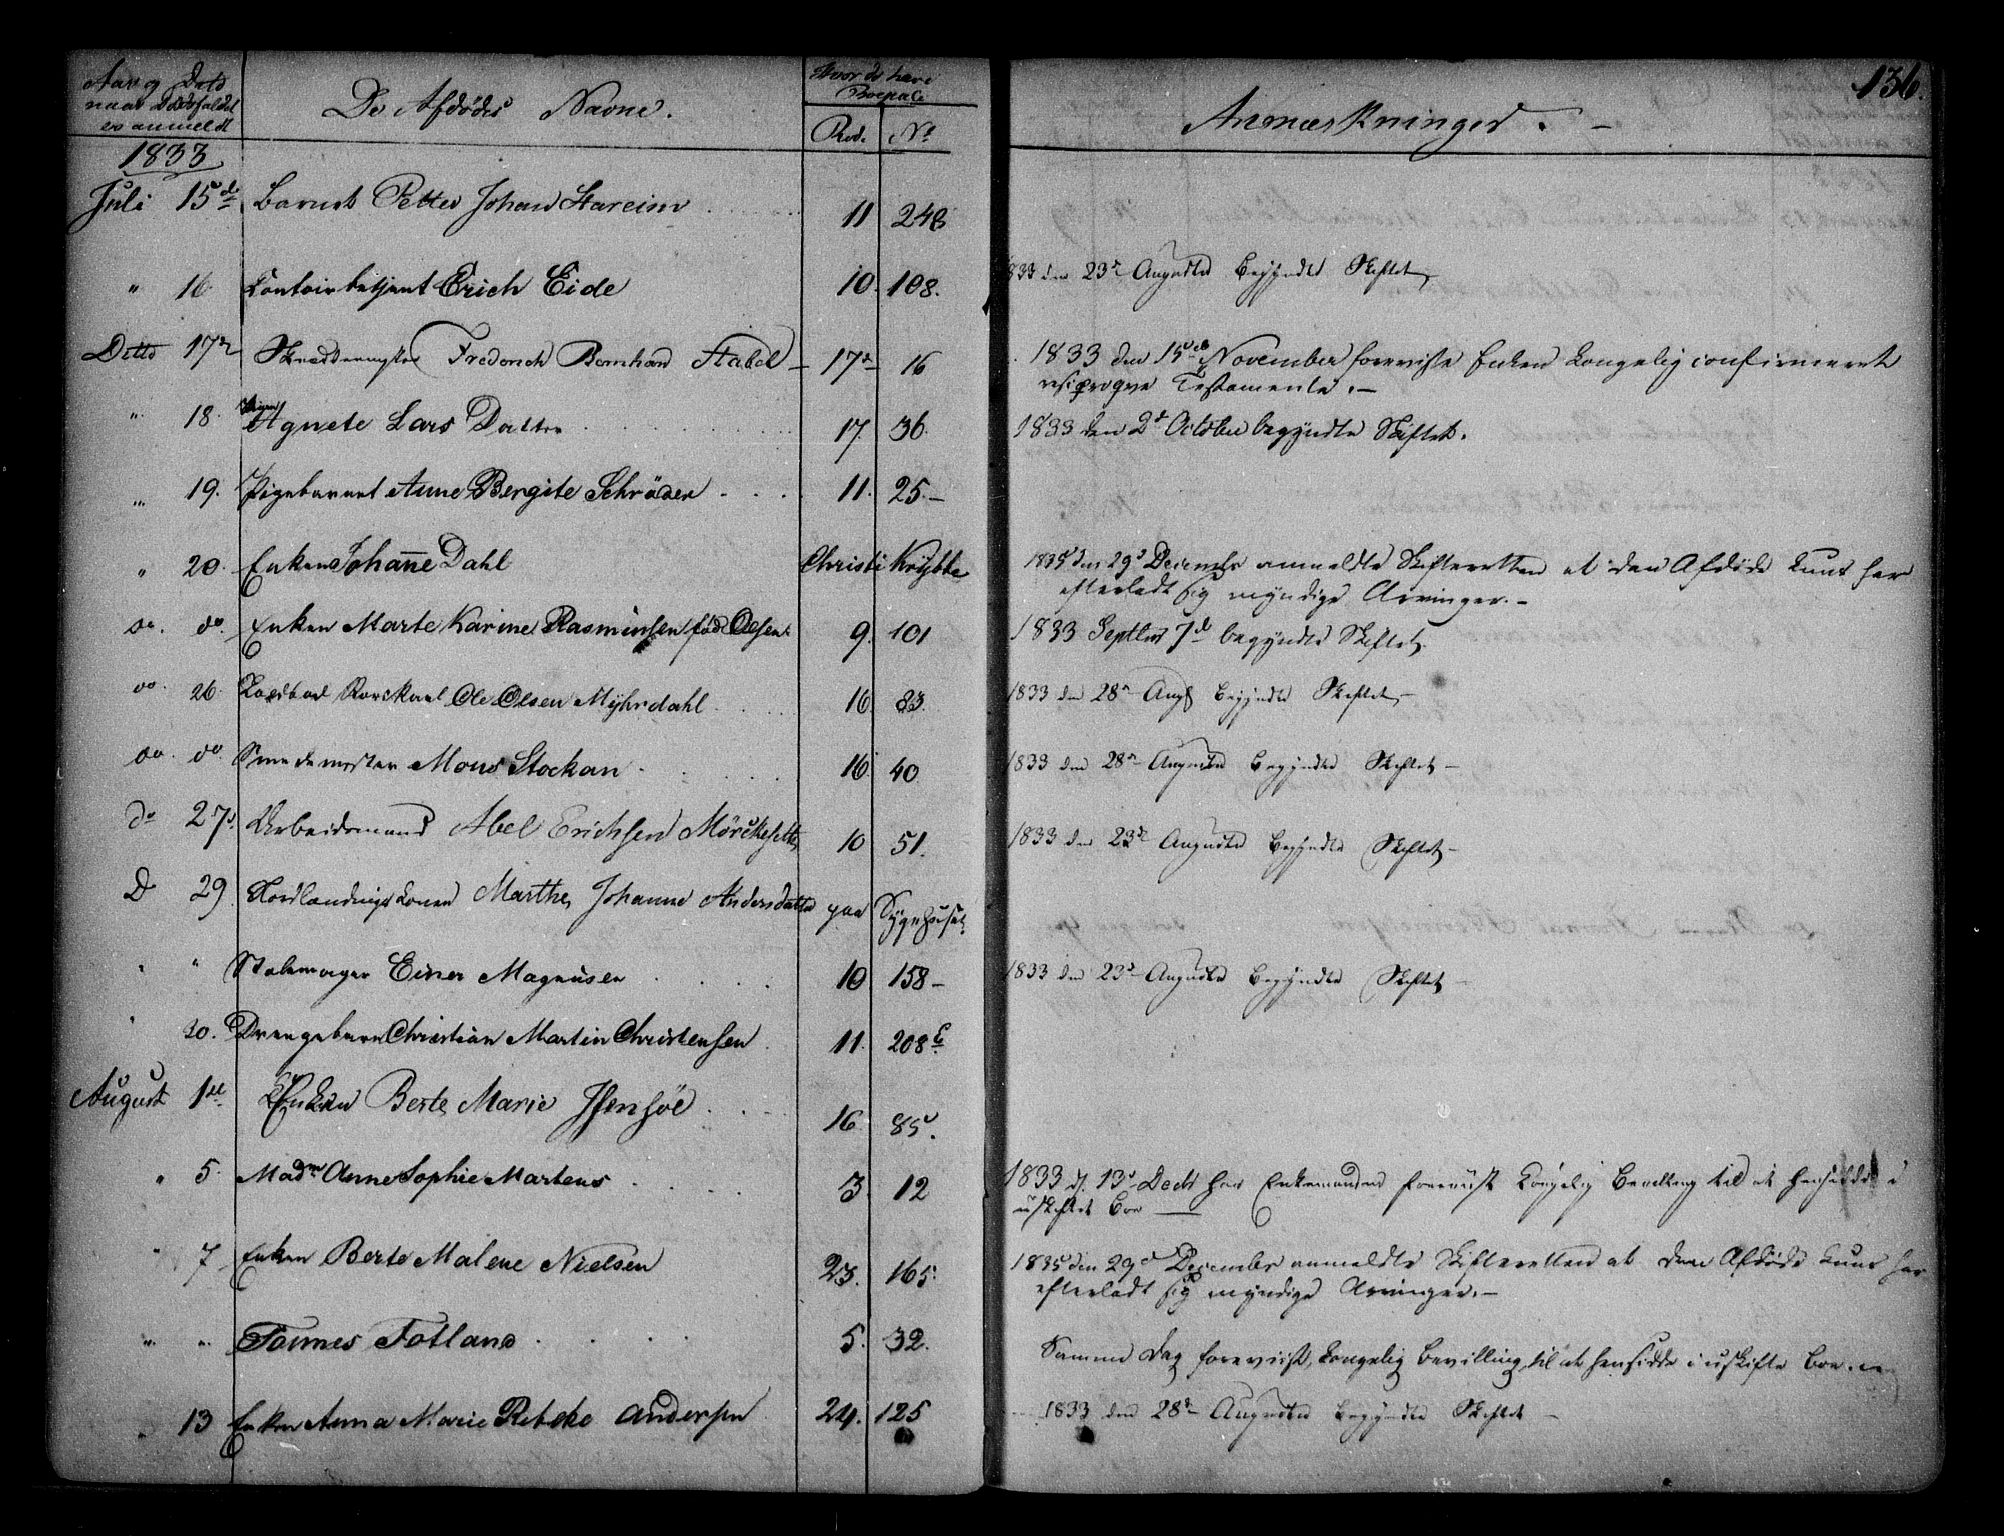 136.
Aar og Dato
naar Dødsfaldet
er anmeldt
De Afdødes Navne.
Hvor de have
Boepæle
Rod. No
Anmærkninger. –
1833
Juli 15de Barnet Petter Johan Hareim 11 248
" 16 Contoirbetjent Erich Eide 10. 108. 1833 den 23de Augusti begyndte Skiftet
Ditto 17de Skreddermester Frederich Bernhard Stabel – 17de 16 1833 den 15de November foreviiste Enken Kongelig confirmeret
reciproqve Testamente. –
" 18. Agnete Lars Datter 17. 36. 1833 den 2de October begyndte Skiftet.
" 19. Pigebarnet Anne Bergite Schrøder 11. 25. –
" 20. Enken Johanne Dahl Christi Krybbe 1835 den 29de December anmeldte Skifteretten at den Afdøde kuns har
efterladt sig myndige Arvinger. –
do. do. Enken Marte Karine Rasmussen fød Olsen. 9. 101 1833 Septbr 7de begyndte Skiftet.
do. 26. Ole Olsen Myhrdahl 16. 83. 1833 den 28de Augt begyndte Skiftet –
do. do. Smedemester Mons Stockan 16. 40. 1833 den 28de Augusti begyndte Skiftet –
do 27de. Arbeidsmand Abel Erichsen Mörcksette 10 51. 1833 den 23de Augusti begyndte Skiftet –
D 29. Nordlændings Konen Marthe Johanne Andersdatter paa Sygehuset.
" " Stolemager Einer Magnusen 10 158 – 1833 den 23de Augusti begyndte Skiftet –
" 30. Drengebarn Christian Martin Christensen 11. 208
August 1ste Enken Berte Marie Isensöe 16. 85.
" 5. Madm Anne Sophie Martens 3. 12 1833 d. 13de Decbr har Enkemanden foreviist Kongelig Bevilling til at hensidde i
uskiftet Boe –
" 7 Enken Berte Malene Nielsen 23. 165. 1835 den 29de December anmeldte Skifteretten at den Afdøde kuns har
efterladt sig myndige Arvinger. –
" " Tormes Totland 5. 32. Samme Dag foreviist, Kongelig Bevilling til at hensidde i uskifte Boe. –
" 13 Enken Anna Marie Rebekc Andersen 24. 125 1833 den 28de Augusti begyndte Skiftet –